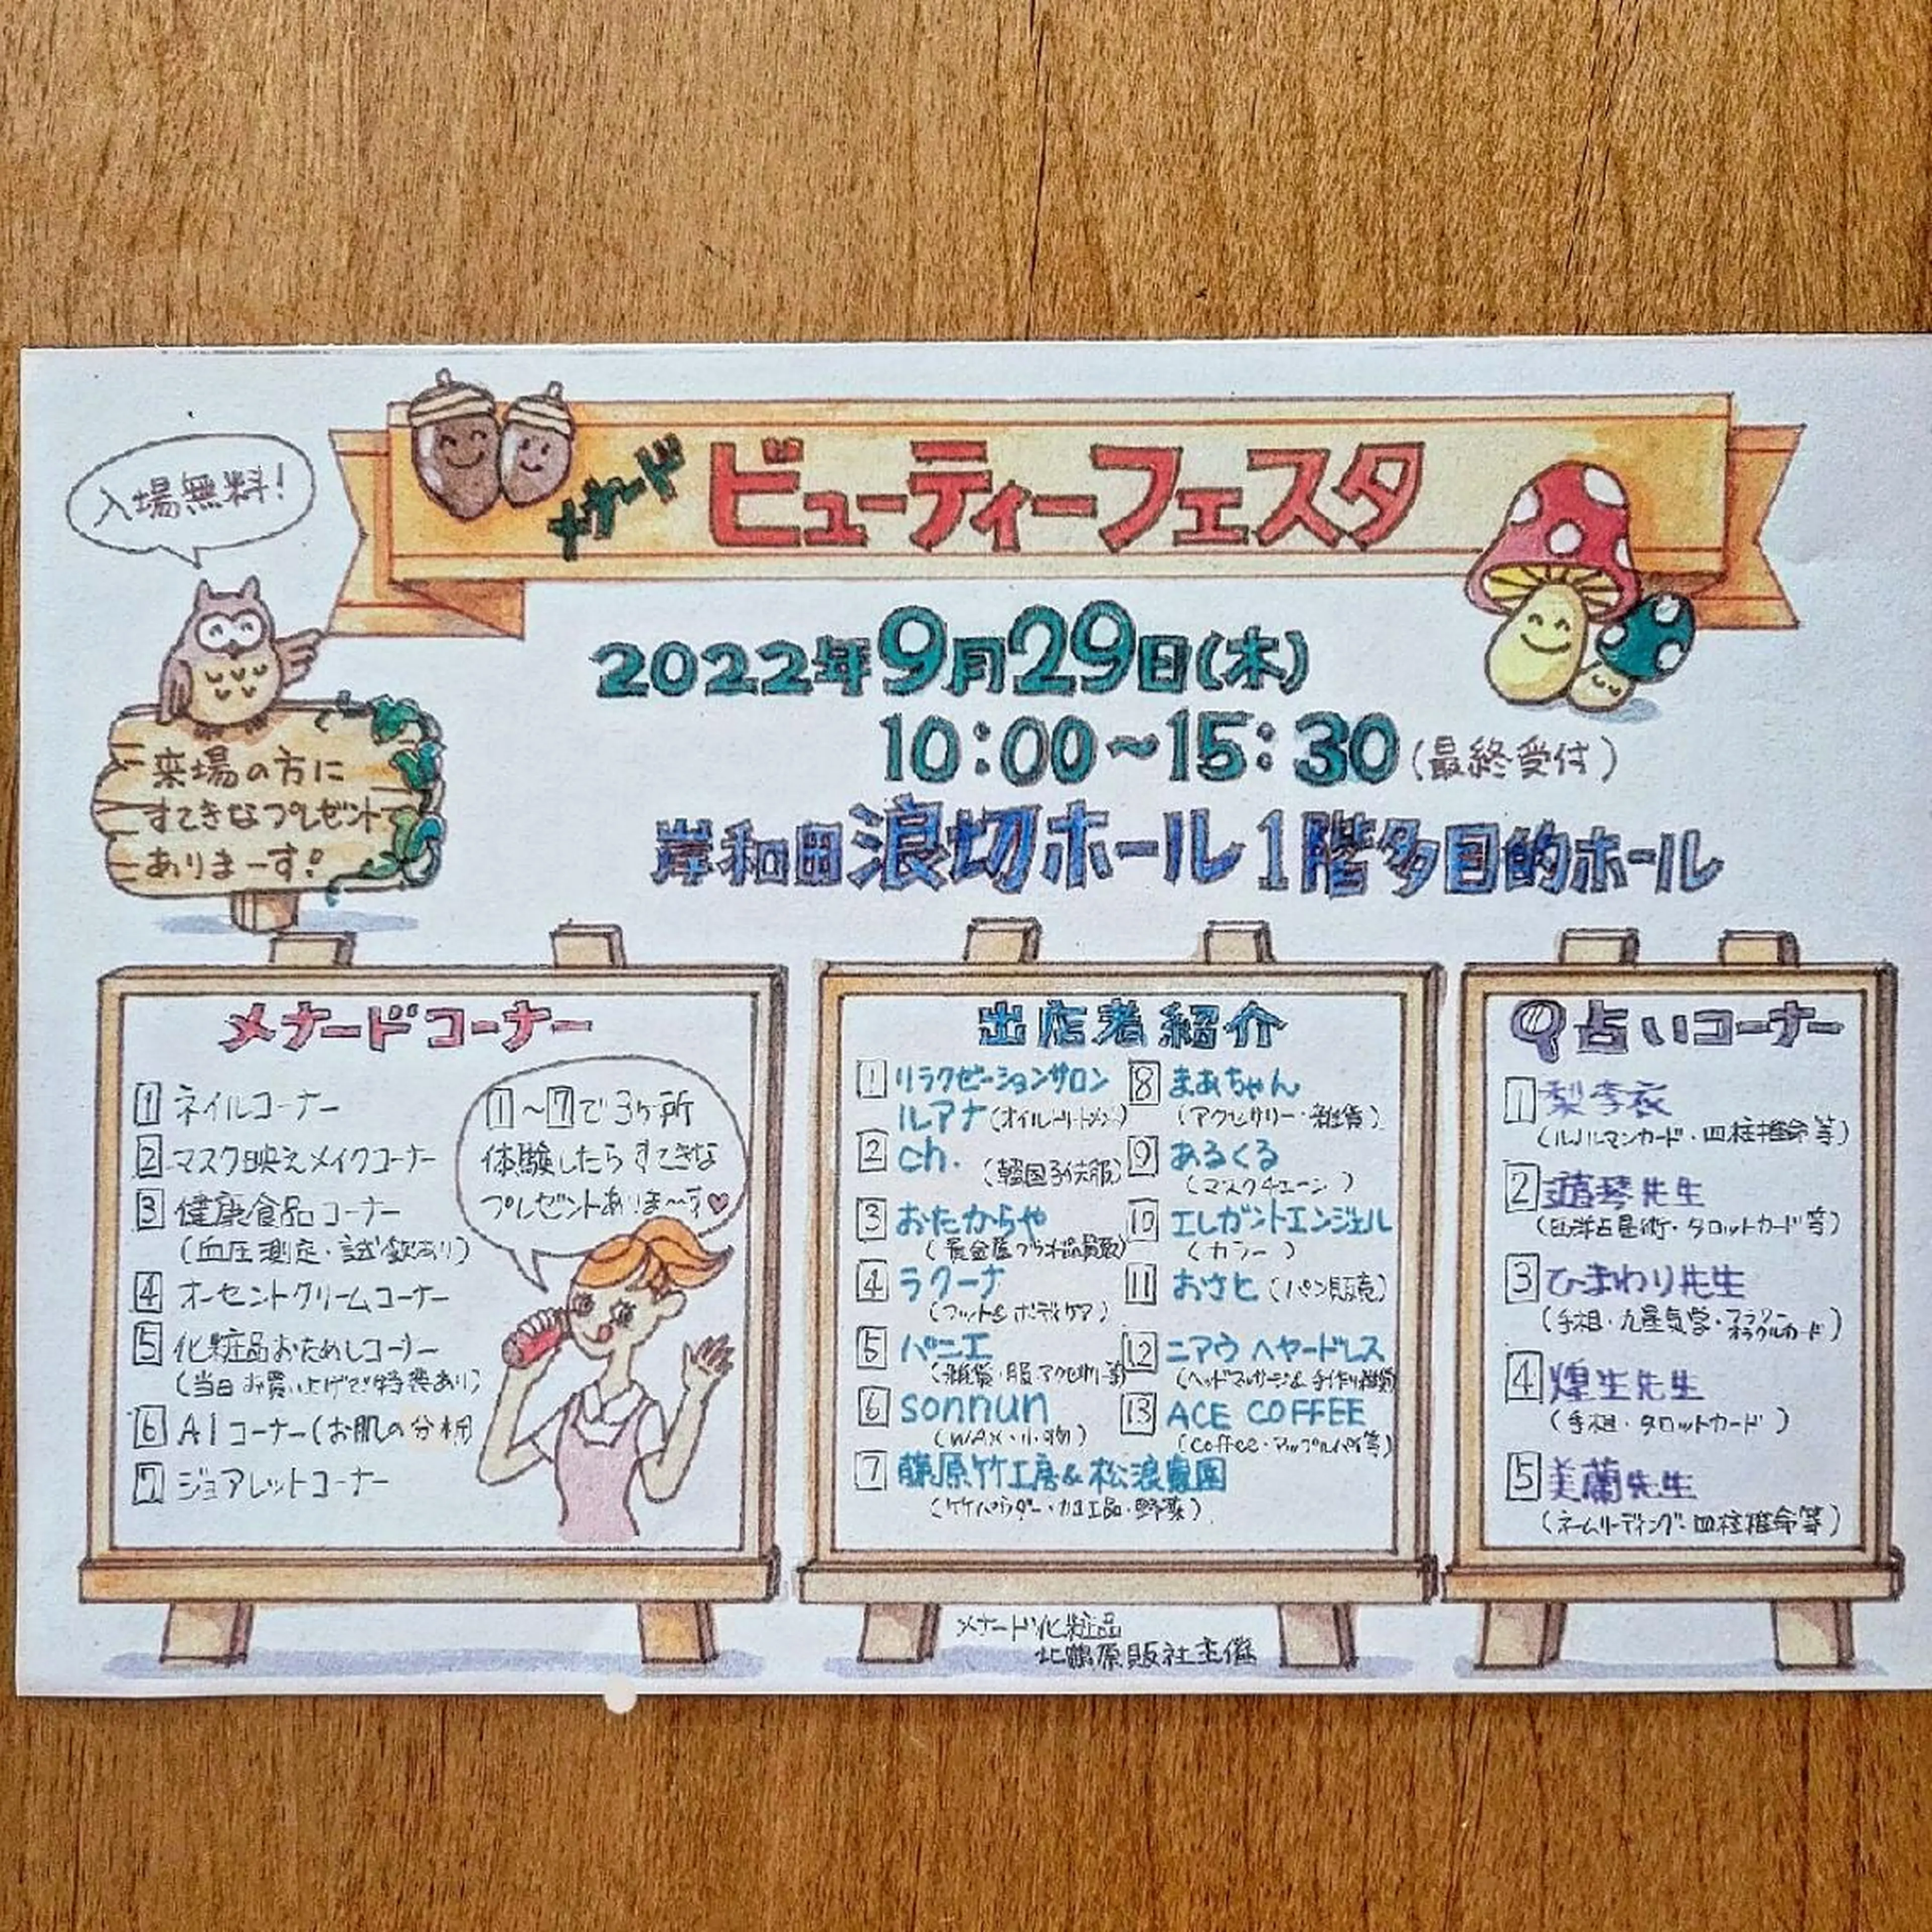 入場無料!
メナード
ビューティーフェスタ
2022年9月29日(木)
10:00~15:30(最終受付)
岸和田浪切ホール1階多目的ホール
来場の方に
すてきなプレゼント
ありまーす!
メナードコーナー
1 ネイルコーナー
2 マスク映えメイクコーナー
3 健康食品コーナー
(血圧測定・試飲あり)
4 オーセントクリームコーナー
5 化粧品おためしコーナー
(当日お買い上げで特典あり)
6 AIコーナー(お肌の分析
7 ジョアレットコーナー
1~7で3ヶ所
体験したらすてきな
プレゼントありま~す♡
出店者紹介
1 リラクゼーションサロン
ルアナ(オイルトリートメント)
2 ch. (韓国子供服)
3 おたからや
(貴金属ブランド品買取)
4 ラクーナ
(フット&ボディケア)
5 パニエ
(雑貨・服・アクセサリー等)
6 sonnun
(WAX・小物)
7 藤原竹工房&松浪農園
(竹パウダー・加工品・野菜)
8 まあちゃん
(アクセサリー・雑貨)
9 あるくる
(マスクチェーン)
10 エレガントエンジェル
(カラー)
11 おさと(パン販売)
12 ニアウ ヘヤードレス
(ヘッドマッサージ&手作り雑貨)
13 ACE COFFEE
(coffee・アップルパイ等)
占いコーナー
1 梨李衣
(ルノルマンカード・四柱推命等)
2 琴先生
(西洋占星術・タロットカード等)
3 ひまわり先生
(手相・九星気学・
オラクルカード)
4 煌生先生
(手相・タロットカード)
5 美蘭先生
(ネームリーディング・四柱推命等)
メナード化粧品
北鶴原販社主催